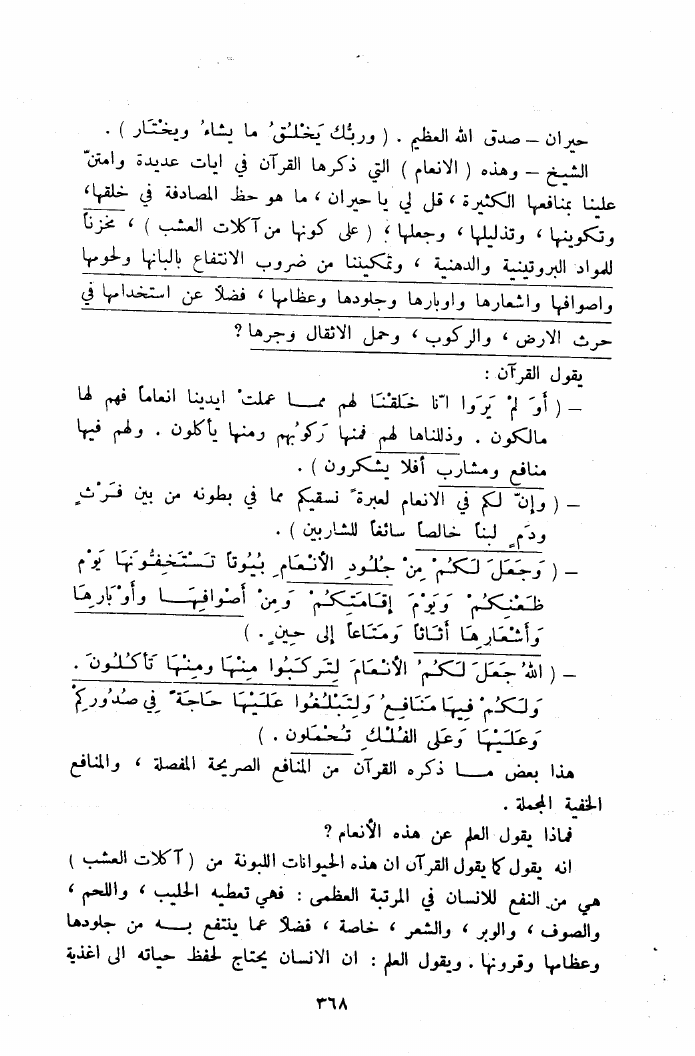 حيران – صدق الله العظيم . ( وربُّك يَخْلُقُ ما يشاءُ ويخْتَار ) .
الشيخ – وهذه ( الانعام ) التي ذكرها القرآن في ايات عديدة وامتنّ
علينا بمنافعها الكثيرة ، قل لي يا حيران ، ما هو حظ المصادفة في خلقها،
وتكوينها ، وتذليلها ، وجعلها ، ( على كونها من آكلات العشب ) ، مخزناً
للمواد البروتينية والدهنية ، وتمكيننا من ضروب الانتفاع بالبانها ولحومها
واصوافها واشعارها واوبارها وجلودها وعظامها ، فضلاً عن استخدامها في
حرث الارض ، والركوب ، وحمل الاثقال وجرها ؟
يقول القرآن :
– ( أوَ لمْ يَرَوا انّا خَلَقْنَا لهم ممـا عملتْ ايدينا انعاماً فهم لها
مالكون . وذللناها لهم فمنها رَكوبُهم ومنها يأكلون . ولهم فيها
منافع ومشارب أفلا يشكرون ) .
– ( وإنّ لكم في الانعام لعبرةً نسقيكم مما في بطونه من بين فَرْثٍ
ودَمٍ لبناً خالصاً سائغاً للشاربين ) .
– ( وَجَعَلَ لَكُمْ مِنْ جُلُودِ الأنْعَامِ بُيُوتاً تَسْتَخِفُّونَهَا يَوْم
ظَعْنِكُمْ وَيَوْمَ إقَامَتِكُمْ وَمِنْ أصْوافِهَـا وأوْبَارِهَا
وَأشْعَارِهَا أثَاثاً وَمَتَاعاً إلى حِينٍ . )
– ( اللهُ جَعَلَ لَكُمُ الأنْعَامَ لِتَركَبُوا مِنْهَا ومِنْهَا تَأكُلُونَ .
وَلَكُمْ فِيهَا مَنَافِعُ وَلِتَبْلُغُوا عَلَيْهَا حَاجَةً فِي صُدُورِكُمْ
وَعَلَيْهَا وَعَلى الفُلْكِ تُحْمَلون . )
هذا بعض مـا ذكره القرآن من المنافع الصريحة المفصلة ، والمنافع
الخفية المجملة .
فماذا يقول العلم عن هذه الأنعام ؟
انه يقول كما يقول القرآن ان هذه الحيوانات اللبونة من ( آكلات العشب )
هي من النفع للانسان في المرتبة العظمى : فهي تعطيه الحليب ، واللحم ،
والصوف ، والوبر ، والشعر ، خاصة ، فضلاً عما ينتفع بـه من جلودها
وعظامها وقرونها . ويقول العلم : ان الانسان يحتاج لحفظ حياته الى اغذية
٣٦٨